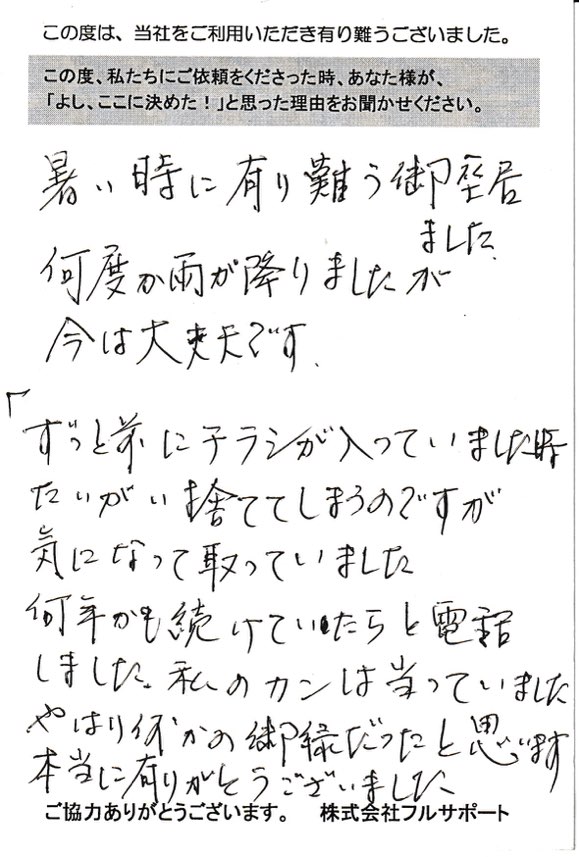 この度は、当社をご利用いただき有り難うございました。
この度、私たちにご依頼をくださった時、あなた様が、
「よし、ここに決めた！」と思った理由をお聞かせください。
暑い時に有り難う御座居
ました
何度か雨が降りましたが
今は大丈夫です.
「ずっと前にチラシが入っていました時
たいがい捨ててしまうのですが
気になって取っていました
何年かも続けていたらと電話
しました。私のカンは当っていました
やはり何かの御縁だったと思います
本当に有りがとうございました
ご協力ありがとうございます。　株式会社フルサポート